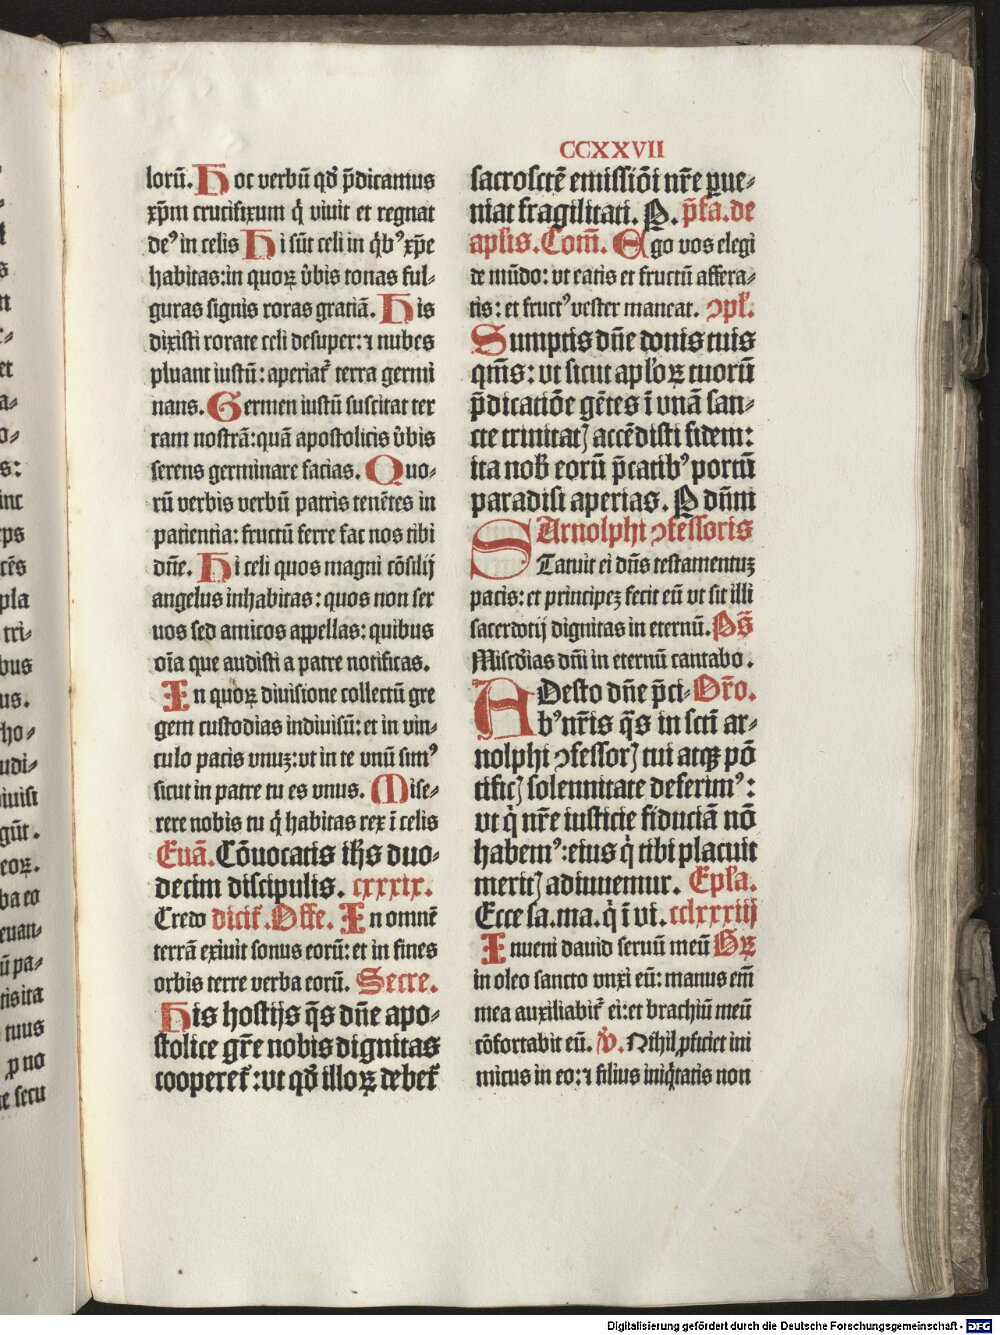 CCXXVII
lorū. Hoc verbū qď p̄dicamus
xp̄m crucifixum q̇ viuit et regnat
deꝰ in celis Hi sūt celi in q̇bꝰ xp̄e
habitas: in quoꝝ v̇bis tonas ful⸗
guras signis roras gratiā. His
dixisti rorate celi desuper: ⁊ nubes
pluant iustū: aperiat᷑ terra germi
nans. Germen iustū suscitat ter
ram nostrā: quā apostolicis v̇bis
serens germinare facias. Quo⸗
rū verbis verbū patris tenētes in
patientia: fructū ferre fac nos tibi
dn̄e. Hi celi quos magni cōsilij
angelus inhabitas: quos non ser
uos sed amicos appellas: quibus
oīa que audisti a patre notificas.
In quoꝝ diuisione collectū gre
gem custodias indiuisū: et in vin⸗
culo pacis vnuꝫ: vt in te vnū simꝰ
sicut in patre tu es vnus. Mise⸗
rere nobis tu q̇ habitas rex ī celis
Euā. Cōuocatis ih̄s duo⸗
decim discipulis. cxxxix.
Credo dicit᷑. Offe. In omnē
terrā exiuit sonus eorū: et in fines
orbis terre verba eorū. Secre.
His hostijs q̄s dn̄e apo⸗
stolice gr̄e nobis dignitas
cooperet᷑: vt qď illoꝝ debet᷑
sacrosctē emissiōi nr̄e ꝑue⸗
niat fragilitati. P. p̄fa. de
apl̄is. Com̄. Ego vos elegi
de mūdo: vt eatis et fructū affera⸗
tis: et fructꝰ vester maneat. ꝯpl̄.
Sumptis dn̄e donis tuis
qm̄s: vt sicut apl̄oꝝ tuorū
p̄dicatiōe gētes ī vnā san⸗
cte trinitatꝭ accēdisti fidem:
ita nob̄ eorū p̄catibꝰ portū
paradisi aperias. P dn̄m
Arnolphi ꝯfessoris
STatuit ei dn̄s testamentuꝫ
pacis: et principeꝫ fecit eū vt sit illi
sacerdotij dignitas in eternū. Ps̄
Miscďias dn̄i in eternū cantabo.
ADesto dn̄e p̄ci⸗ Or̄o.
bꝰ nr̄is q̄s in scti ar⸗
nolphi ꝯfessorꝭ tui atqꝫ pō
tificꝭ solennitate deferimꝰ:
vt q̇ nr̄e iusticie fiduciā nō
habemꝰ: eius q̇ tibi placuit
meritꝭ adiuuemur. Epl̄a.
Ecce sa. ma. q̇ ī vi. cclxxxiij
Inueni dauid seruū meū Gꝝ
in oleo sancto vnxi eū: manus em̄
mea auxiliabit᷑ ei: et brachiū meū
cōfortabit eū. V̇. Nihil ꝓficiet ini
micus in eo: ⁊ filius iniq̇tatis non